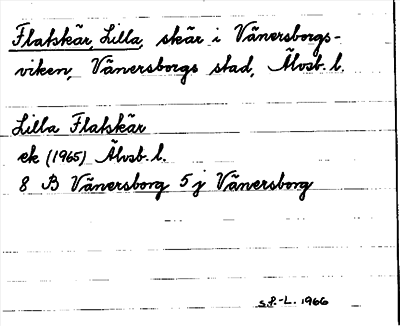 Flatskär, Lilla, skär i Vänersborgs-
viken, Vänersborgs stad, Älvsb. l.
Lilla Flatskär
ek (1965) Älvsb. l.
8 B Vänersborg 5 j Vänersborg
S.P.-L. 1966